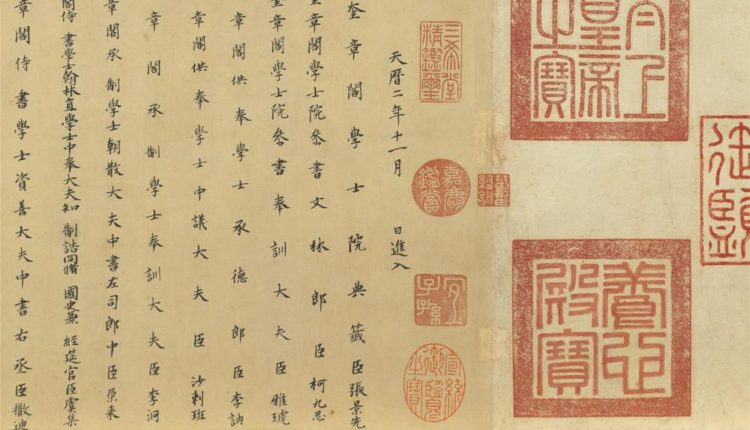 御覽
上皇帝之寶
養心殿寶
三希堂精鑑璽
嘉慶鑑賞
宜子孫
宣統御覽之寶
天曆二年十一月 日進入
奎章閣學士院典籤臣張景先
奎章閣學士院參書文林郎臣柯九思
奎章閣學士院參書奉訓大夫臣雅琥
章閣供奉學士承德郎臣李訥
章閣供奉學士中議大夫臣沙剌班
章閣承制學士奉訓大夫臣李泂
章閣承制學士朝散大夫中書左司郎中臣朶来
閣侍書學士翰林直學士中奉大夫知制誥同脩國史兼經筵官臣虞集
章閣侍書學士資善大夫中書右丞臣撒迪